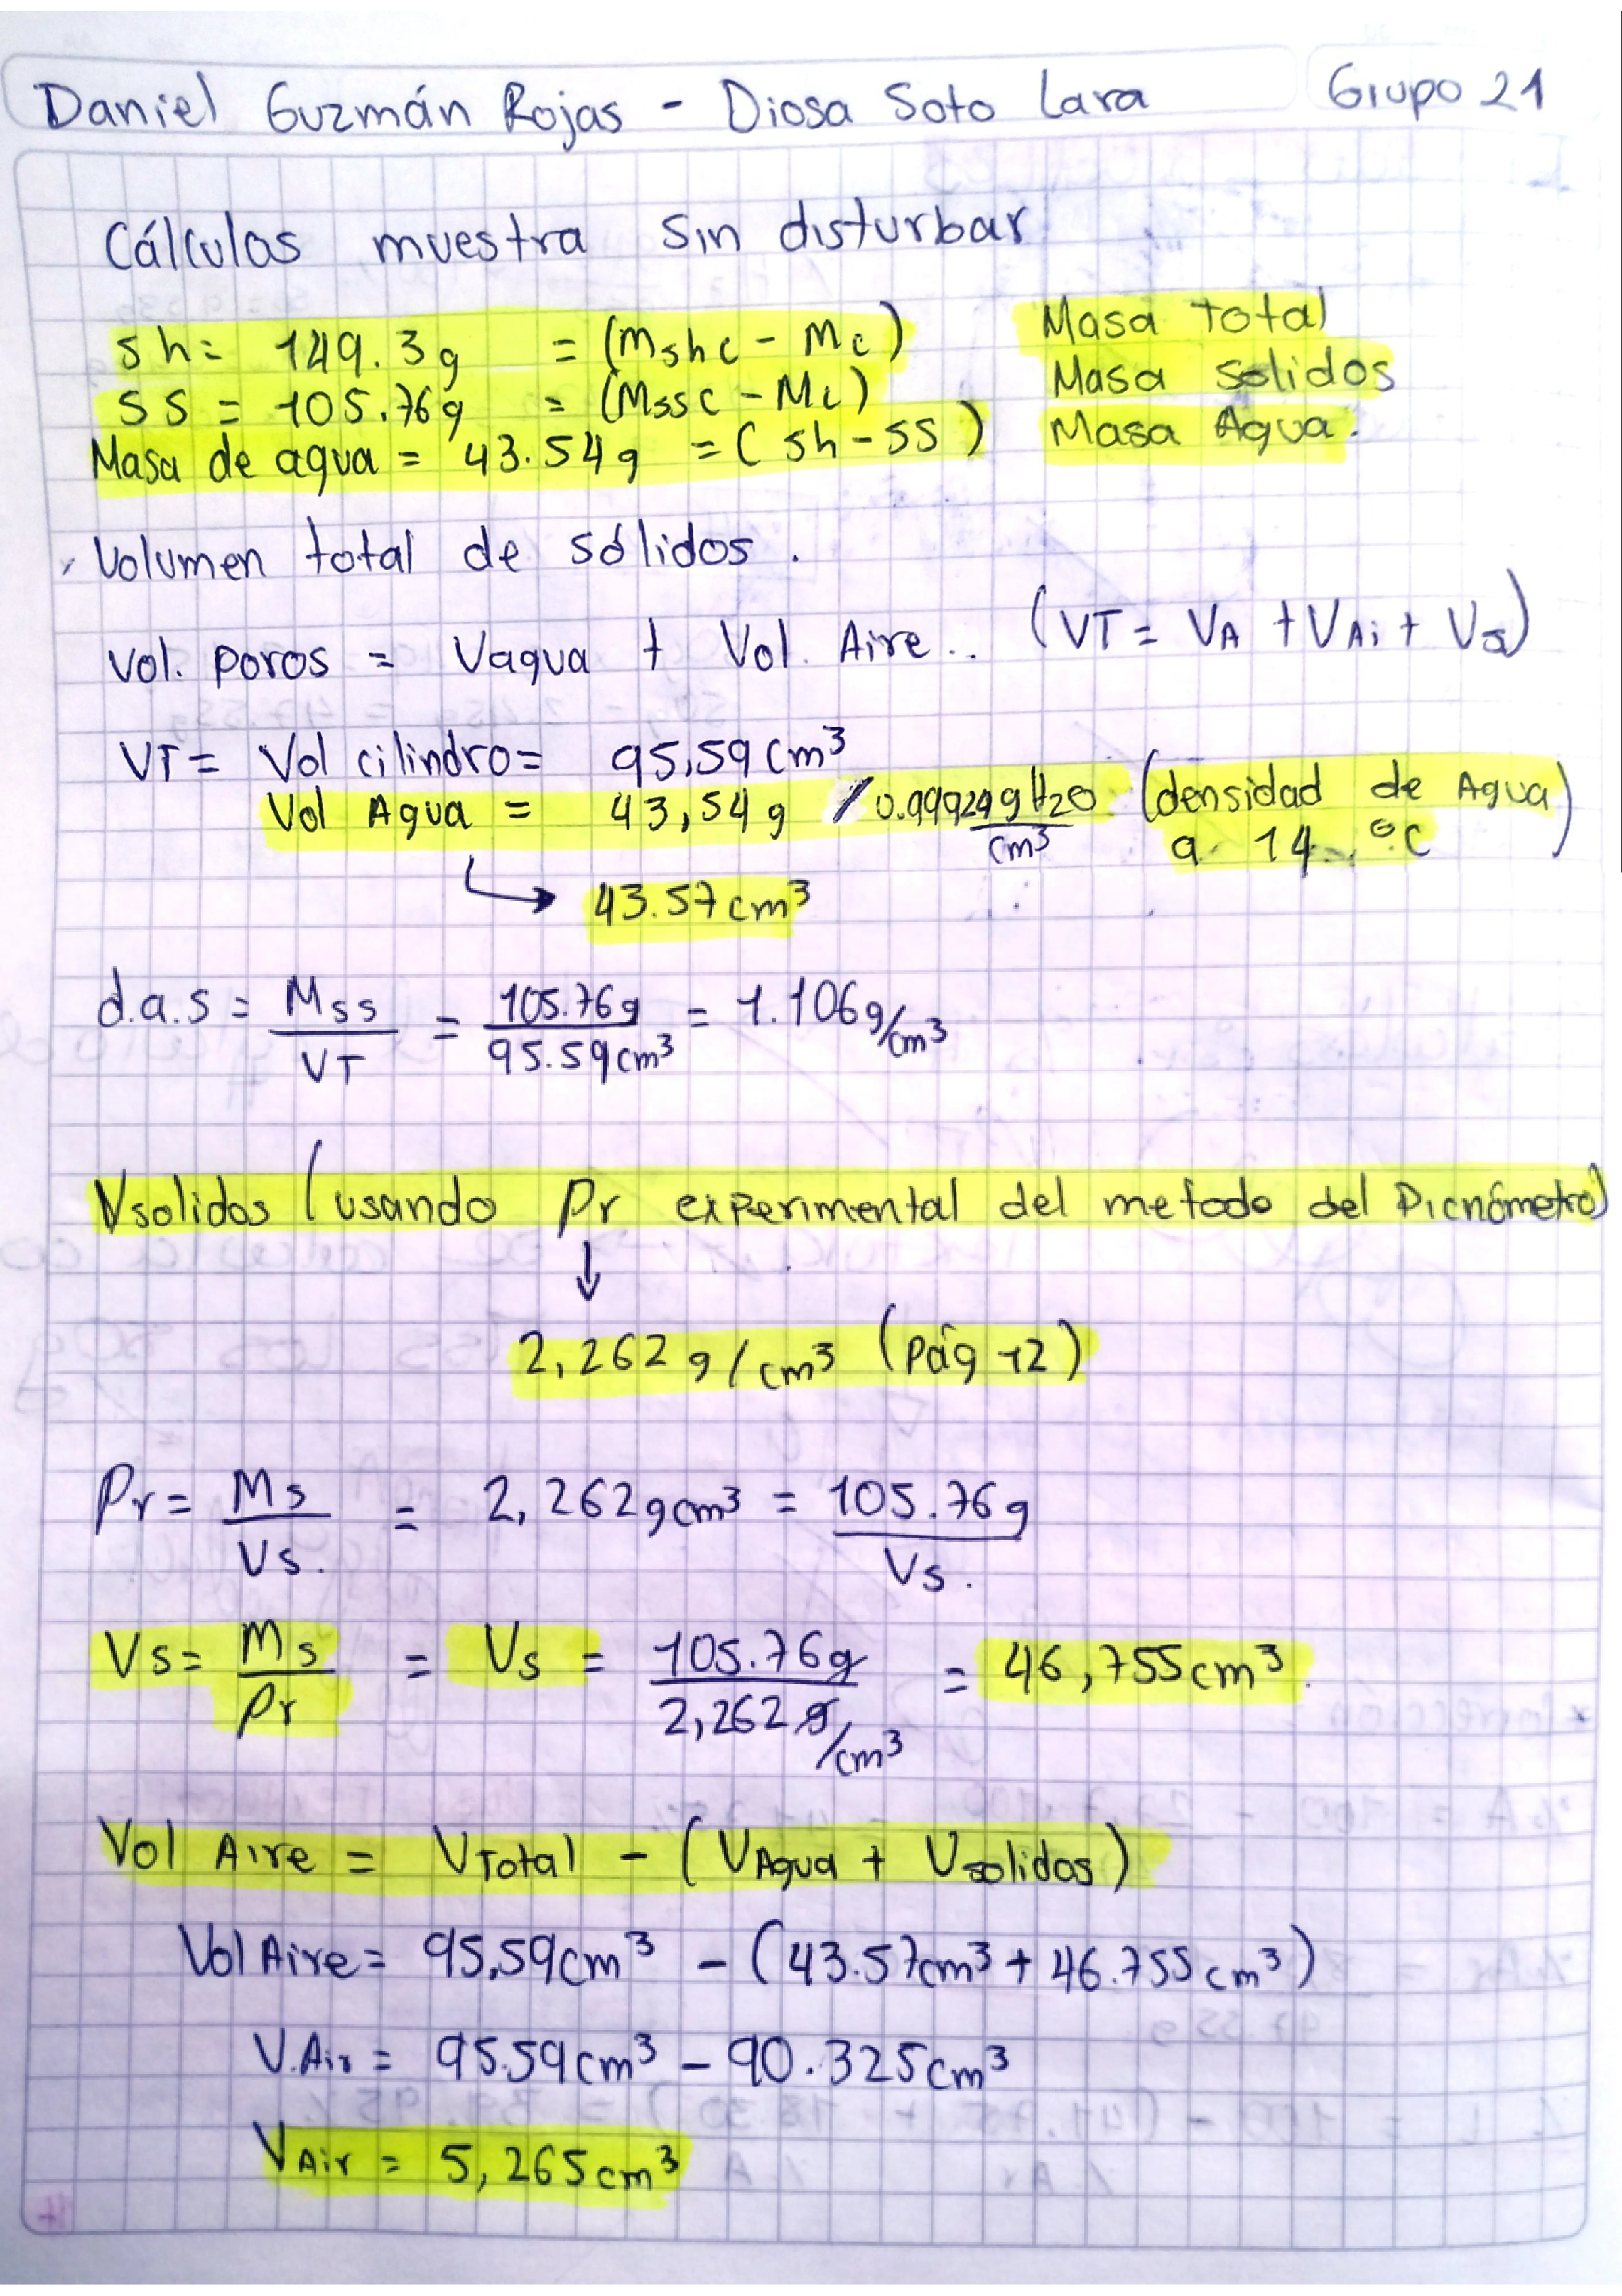 Daniel Guzmán Rojas - Diosa Soto Lara Grupo 21
Cálculos muestra sin disturbar
sh= 149.3g = (mshc - Mc) Masa total
SS = 105.76g = (Mssc - Mc) Masa solidos
Masa de agua = 43.54g = (sh-ss) Masa Agua.
Volumen total de sólidos.
Vol. poros = Vagua + Vol. Aire.. (VT = VA + VAi + Vs)
VT= Vol cilindro= 95,59 cm³
Vol Agua = 43,54g / 0.99929 g H2O/cm³ (densidad de Agua a 14 °C)
↳ 43.57cm³
d.a.s = Mss/VT = 105.76g/95.59cm³ = 1.106g/cm³
Vsolidos (usando Pr experimental del metodo del Picnómetro)
↓
2,262g/cm³ (pág 12)
Pr= Ms/Vs. = 2,262gcm³ = 105.76g/Vs.
Vs= Ms/Pr = Vs = 105.76g/2,262g/cm³ = 46,755cm³.
Vol Aire = VTotal - (VAgua + Vsolidos)
Vol Aire= 95,59cm³ - (43.57cm³ + 46.755cm³)
V.Air = 95.59cm³ - 90.325cm³
VAir = 5,265cm³